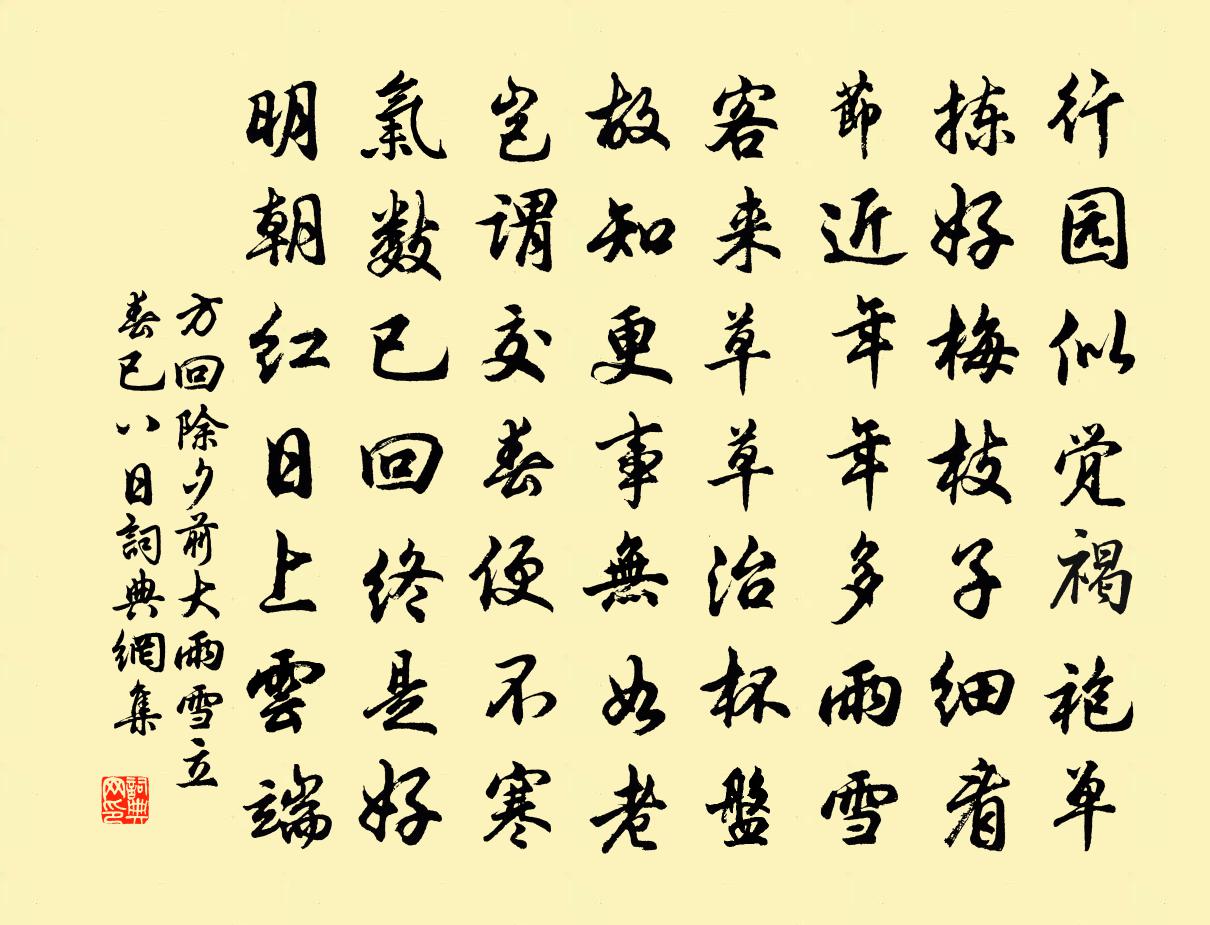 行园似觉褐袍单
拣好梅枝子细看
節近年年多雨雪
客来草草治杯盤
故知更事無如老
岂谓交春便不寒
氣数已回终是好
明朝红日上雲端
方回除夕前大雨雪立
春已八日詞典網集
詞典
网印